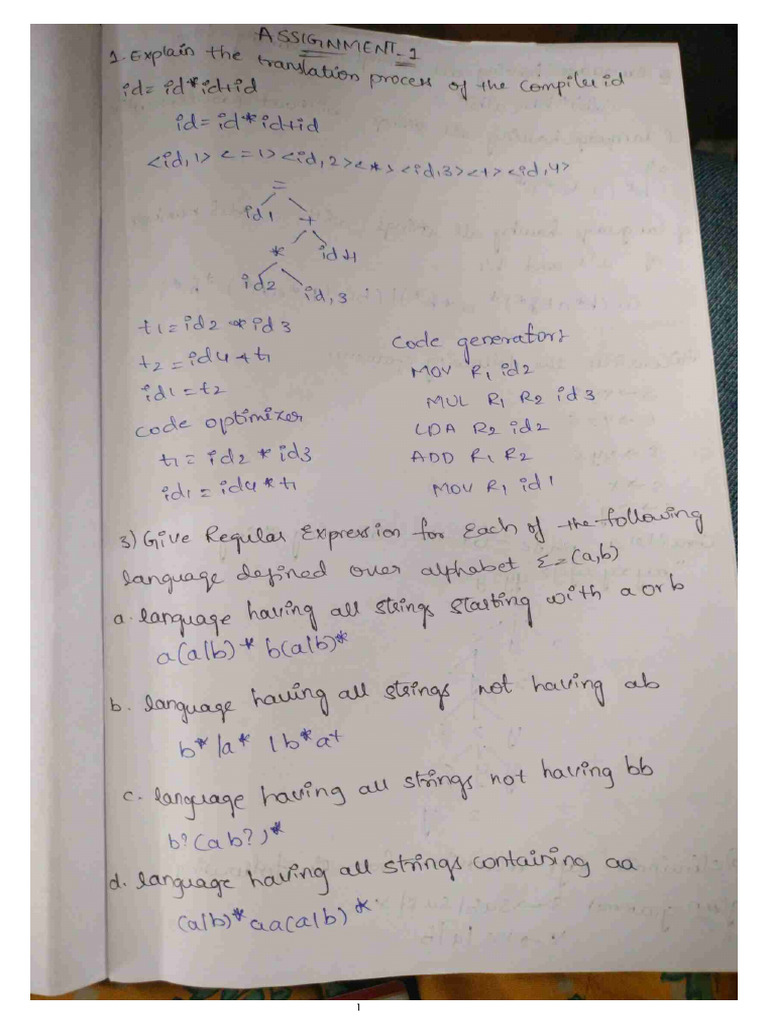 ASSIGNMENT-1
1. Explain the translation process of the compiler id
id= id*id+id
id= id*id+id
<id,1> <=1> <id,2> <*> <id,3> <+> <id,4>
=
id1 +
* id4
id2 id,3
t1 = id2 * id3
t2 = id4 + t1
id1 = t2
code optimizer
t1 = id2 * id3
id1 = id4 * t1
code generators
MOV R1 id2
MUL R1 R2 id3
LDA R2 id2
ADD R1 R2
MOV R1 id1
3) Give Regular Expression for each of the following
language defined over alphabet Σ=(a,b)
a. language having all strings starting with a or b
a(a/b)* b(a/b)*
b. language having all strings not having ab
b* /a* | b*a+
c. language having all strings not having bb
b?(ab?)*
d. language having all strings containing aa
(a/b)*aa(a/b)*
1